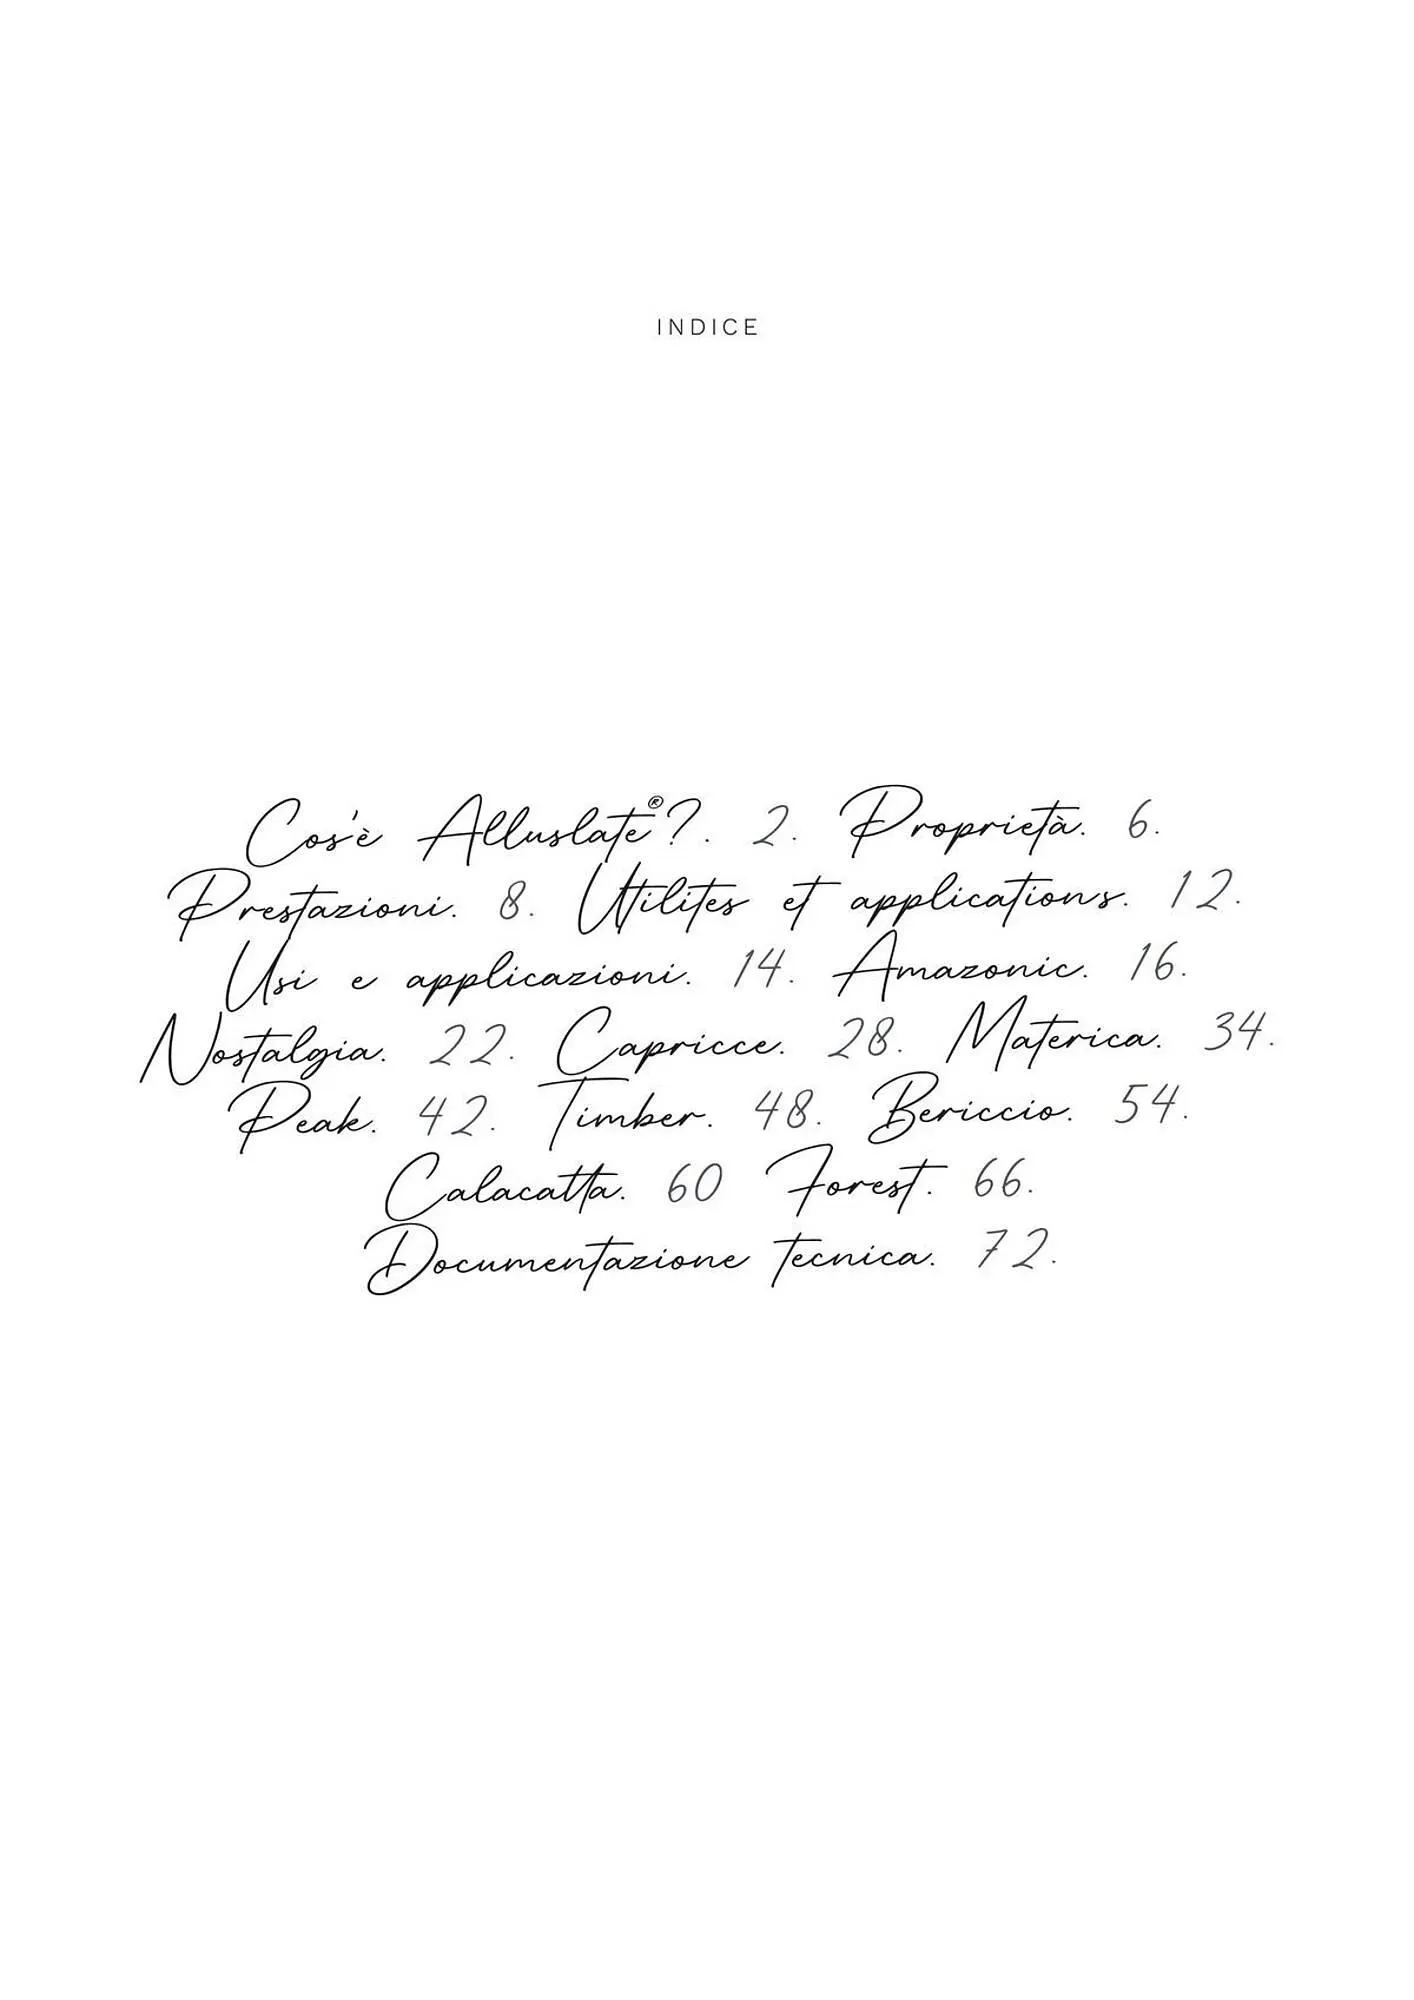 INDICE
Cos'è Alluslate®?. 2. Proprietà. 6.
Prestazioni. 8. Utilites et applications. 12.
Usi e applicazioni. 14. Amazonic. 16.
Nostalgia. 22. Capricce. 28. Materica. 34.
Peak. 42. Timber. 48. Bericcio. 54.
Calacatta. 60 Forest. 66.
Documentazione tecnica. 72.